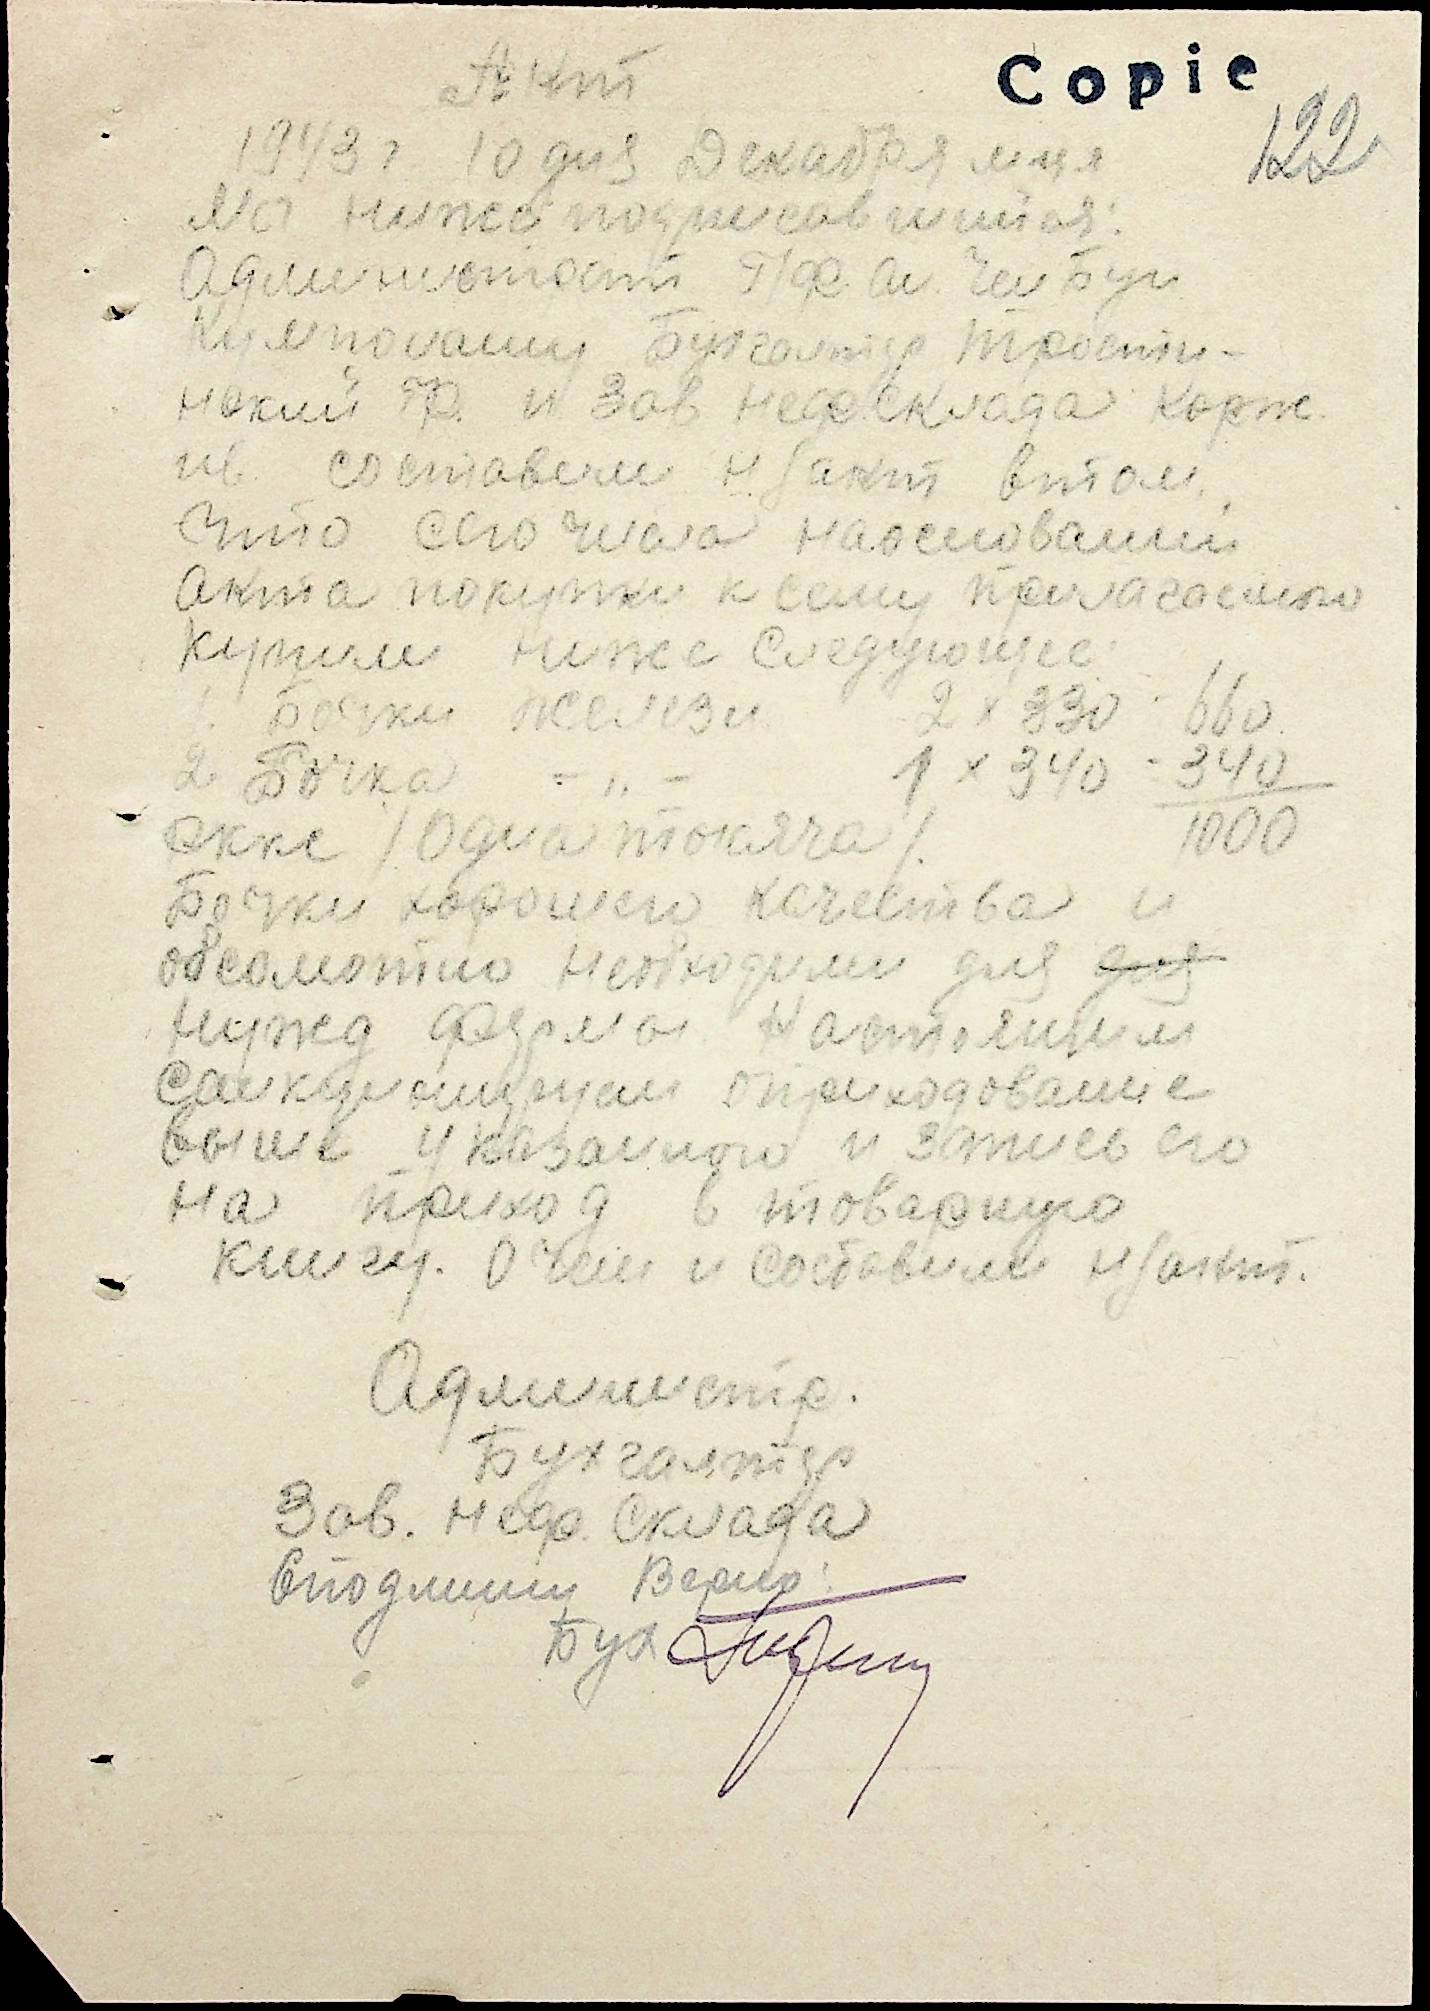 Акт
Copie
122
1943 г 10 дня Декабря м-ця
Мы ниже подписавшийся:
Администрат
Бухгалтер Тростя-
нский и Зав Неф Склада Корж
составили н/акт в том,
Что сего числа на основании
Акта покупки к сему прилагаемого
Купили ниже Следующее:
1. Бочки железн 2 x 330 - 660
2 Бочка -„- 1 x 340 - 340
1000
/ Одна /.
Бочки хорошего качества и
необходими для для
Нужд Фермы. Настоящим
оприходование
выше указанного и запись его
на приход в товарную
книгу. О чем и составили н/акт.
Администр.
Бухгалтер
Зав. Неф. Склада
Сподлинну Верно:
Бух